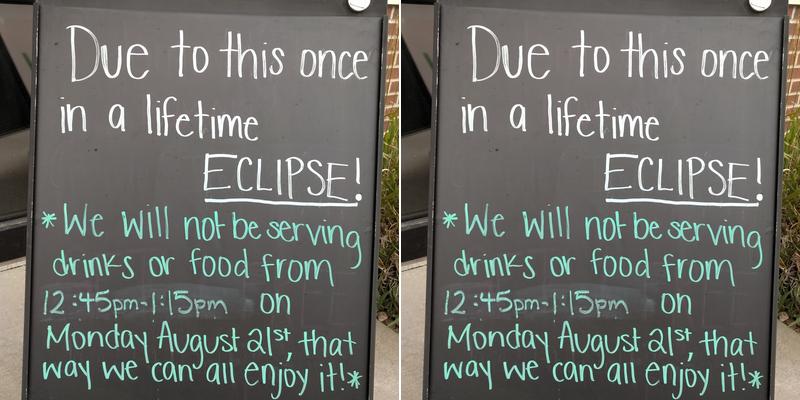 Due to this once
in a lifetime
ECLIPSE!
*We will not be serving
drinks or food from
12:45pm-1:15pm on
Monday August 21st, that
way we can all enjoy it!*
Due to this once
in a lifetime
ECLIPSE!
*We will not be serving
drinks or food from
12:45pm-1:15pm on
Monday August 21st, that
way we can all enjoy it!*